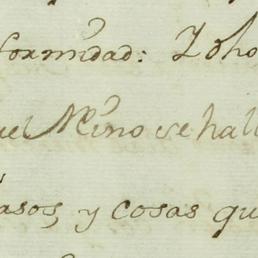 formidad: Y oho
uel Mino se hall
asos, y cosas qu